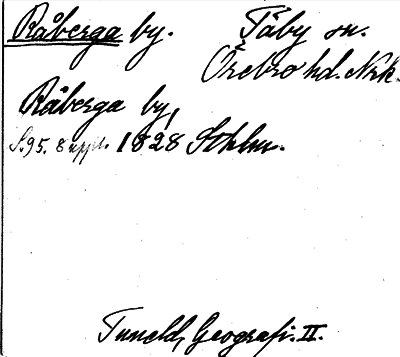 Råberga by. Täby sn.
Örebro hd. Nrk.
Råberga by,
S. 95. 8 uppl. 1828 Sohlm.
Tuneld, Geografi. II.